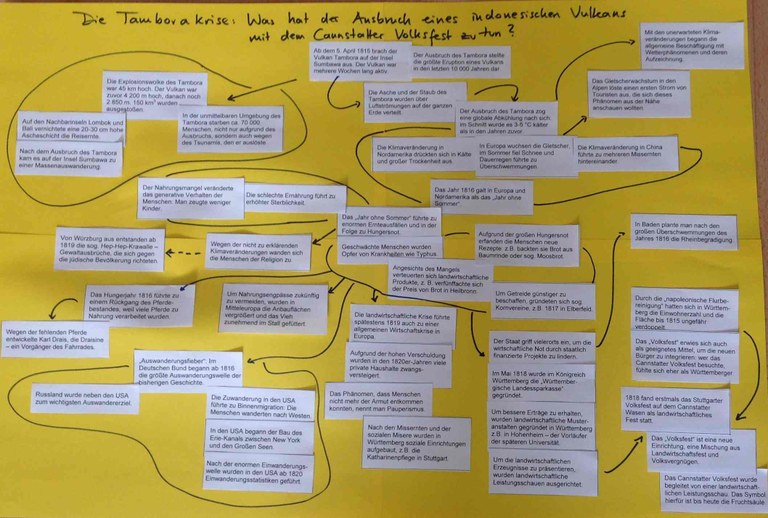 Die Tamborakrise: Was hat der Ausbruch eines indonesischen Vulkans
mit dem Cannstatter Volksfest zu tun?
Ab dem 5. April 1815 brach der
Vulkan Tambora auf der Insel
Sumbawa aus. Der Vulkan war
mehrere Wochen lang aktiv.
Der Ausbruch des Tambora stellte
die größte Eruption eines Vulkans
in den letzten 10 000 Jahren dar.
Mit den unerwarteten Klima-
veränderungen begann die
allgemeine Beschäftigung mit
Wetterphänomenen und deren
Aufzeichnung.
Die Explosionswolke des Tambora
war 45 km hoch. Der Vulkan war
zuvor 4 200 m hoch, danach noch
2 850 m. 150 km³ wurden
ausgestoßen.
Die Asche und der Staub des
Tambora wurden über
Luftströmungen auf der ganzen
Erde verteilt.
Der Gletscherwachstum in den
Alpen löste einen ersten Strom von
Touristen aus, die sich dieses
Phänomen aus der Nähe
anschauen wollten.
Der Ausbruch des Tambora zog
eine globale Abkühlung nach sich.
Im Schnitt wurde es 3-5 °C kälter
als in den Jahren zuvor.
Auf den Nachbarinseln Lombok und
Bali vernichtete eine 20-30 cm hohe
Ascheschicht die Reisernte.
In der unmittelbaren Umgebung des
Tambora starben ca. 70 000
Menschen, nicht nur aufgrund des
Ausbruchs, sondern auch wegen
des Tsunamis, den er auslöste.
Nach dem Ausbruch des Tambora
kam es auf der Insel Sumbawa zu
einer Massenauswanderung.
Die Klimaveränderung in
Nordamerika drückten sich in Kälte
und großer Trockenheit aus.
In Europa wuchsen die Gletscher,
im Sommer fiel Schnee und
Dauerregen führte zu
Überschwemmungen.
Die Klimaveränderung in China
führte zu mehreren Missernten
hintereinander.
Das Jahr 1816 galt in Europa und
Nordamerika als das „Jahr ohne
Sommer“.
Der Nahrungsmangel veränderte
das generative Verhalten der
Menschen. Man zeugte weniger
Kinder.
Die schlechte Ernährung führt zu
erhöhter Sterblichkeit.
Das „Jahr ohne Sommer“ führte zu
enormen Ernteausfällen und in der
Folge zu Hungersnot.
Geschwächte Menschen wurden
Opfer von Krankheiten wie Typhus.
Aufgrund der großen Hungersnot
erfanden die Menschen neue
Rezepte, z.B. backten sie Brot aus
Baumrinde oder sog. Moosbrot.
In Baden plante man nach den
großen Überschwemmungen des
Jahres 1816 die Rheinbegradigung.
Von Würzburg aus entstanden ab
1819 die sog. Hep-Hep-Krawalle –
Gewaltausbrüche, die sich gegen
die jüdische Bevölkerung richteten.
Wegen der nicht zu erklärenden
Klimaveränderungen wandten sich
die Menschen der Religion zu.
Angesichts des Mangels
verteuerten sich landwirtschaftliche
Produkte, z.B. verfünffachte sich
der Preis von Brot in Heilbronn.
Das Hungerjahr 1816 führte zu
einem Rückgang des Pferde-
bestandes, weil viele Pferde
zu Nahrung verarbeitet wurden.
Um Nahrungsengpässe zukünftig
zu vermeiden, wurden in
Mitteleuropa die Anbauflächen
vergrößert und das Vieh
zunehmend im Stall gefüttert.
Um Getreide günstiger zu
beschaffen, gründeten sich sog.
Kornvereine, z.B. 1817 in Elberfeld.
Durch die „napoleonische Flurbe-
reinigung“ hatten sich in Württem-
berg die Einwohnerzahl und die
Fläche bis 1815 ungefähr
verdoppelt.
Wegen der fehlenden Pferde
entwickelte Karl Drais, die Draisine
– ein Vorgänger des Fahrrades.
Die landwirtschaftliche Krise führte
spätestens 1819 auch zu einer
allgemeinen Wirtschaftskrise in
Europa.
Der Staat griff vielerorts ein, um die
wirtschaftliche Not durch staatlich
finanzierte Projekte zu lindern.
Das „Volksfest“ erwies sich auch
als geeignetes Mittel, um die neuen
Bürger zu integrieren: wer das
Cannstatter Volksfest besuchte,
fühlte sich eher als Württemberger
„Auswanderungsfieber“: Im
Deutschen Bund begann ab 1816
die große Auswanderungswelle der
bisherigen Geschichte.
Aufgrund der hohen Verschuldung
wurden in den 1820er-Jahren viele
private Haushalte zwangs-
versteigert.
Im Mai 1818 wurde im Königreich
Württemberg die „Württember-
gische Landessparkasse“
gegründet.
Russland wurde neben den USA
zum wichtigsten Auswandererziel.
Die Zuwanderung in den USA
führte zu Binnenmigration: Die
Menschen wanderten nach Westen.
Das Phänomen, dass Menschen
nicht mehr der Armut entkommen
konnten, nennt man Pauperismus.
1818 fand erstmals das Stuttgarter
Volksfest auf dem Cannstatter
Wasen als landwirtschaftliches
Fest statt.
Um bessere Erträge zu erhalten,
wurden landwirtschaftliche Muster-
anstalten gegründet in Württemberg
z.B. in Hohenheim – der Vorläufer
der späteren Universität.
In den USA begann der Bau des
Erie-Kanals zwischen New York
und den Großen Seen.
Nach den Missernten und der
sozialen Misere wurden in
Württemberg soziale Einrichtungen
aufgebaut, z.B. die
Katharinenpflege in Stuttgart.
Das „Volksfest“ ist eine neue
Einrichtung, eine Mischung aus
Landwirtschaftsfest und
Volksvergnügen.
Nach der enormen Einwanderungs-
welle wurden in den USA ab 1820
Einwanderungsstatistiken geführt.
Um die landwirtschaftlichen
Erzeugnisse zu präsentieren,
wurden landwirtschaftliche
Leistungsschauen ausgerichtet.
Das Cannstatter Volksfest wurde
begleitet von einer landwirtschaft-
lichen Leistungsschau. Das Symbol
hierfür ist bis heute die Fruchtsäule.